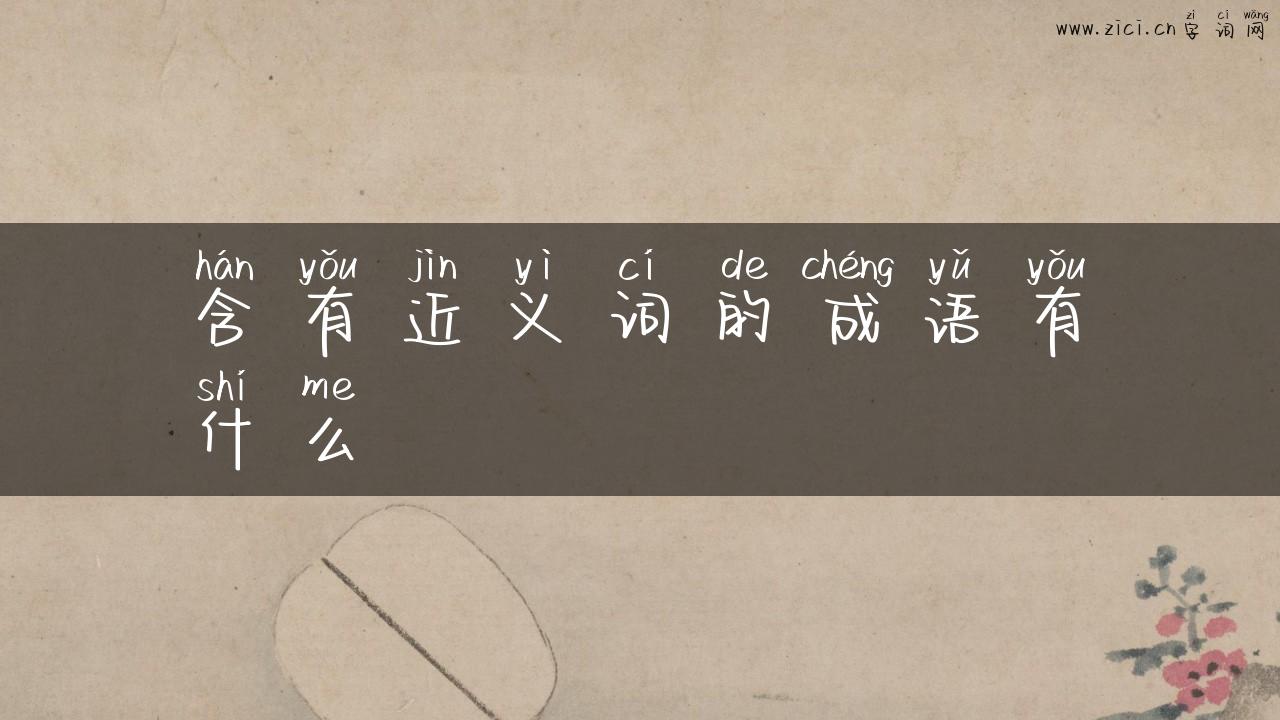 zì cí wǎng
www.zici.cn 字 词 网
hán yǒu jìn yì cí de chéng yǔ yǒu
含 有 近 义 词 的 成 语 有
shí me
什 么